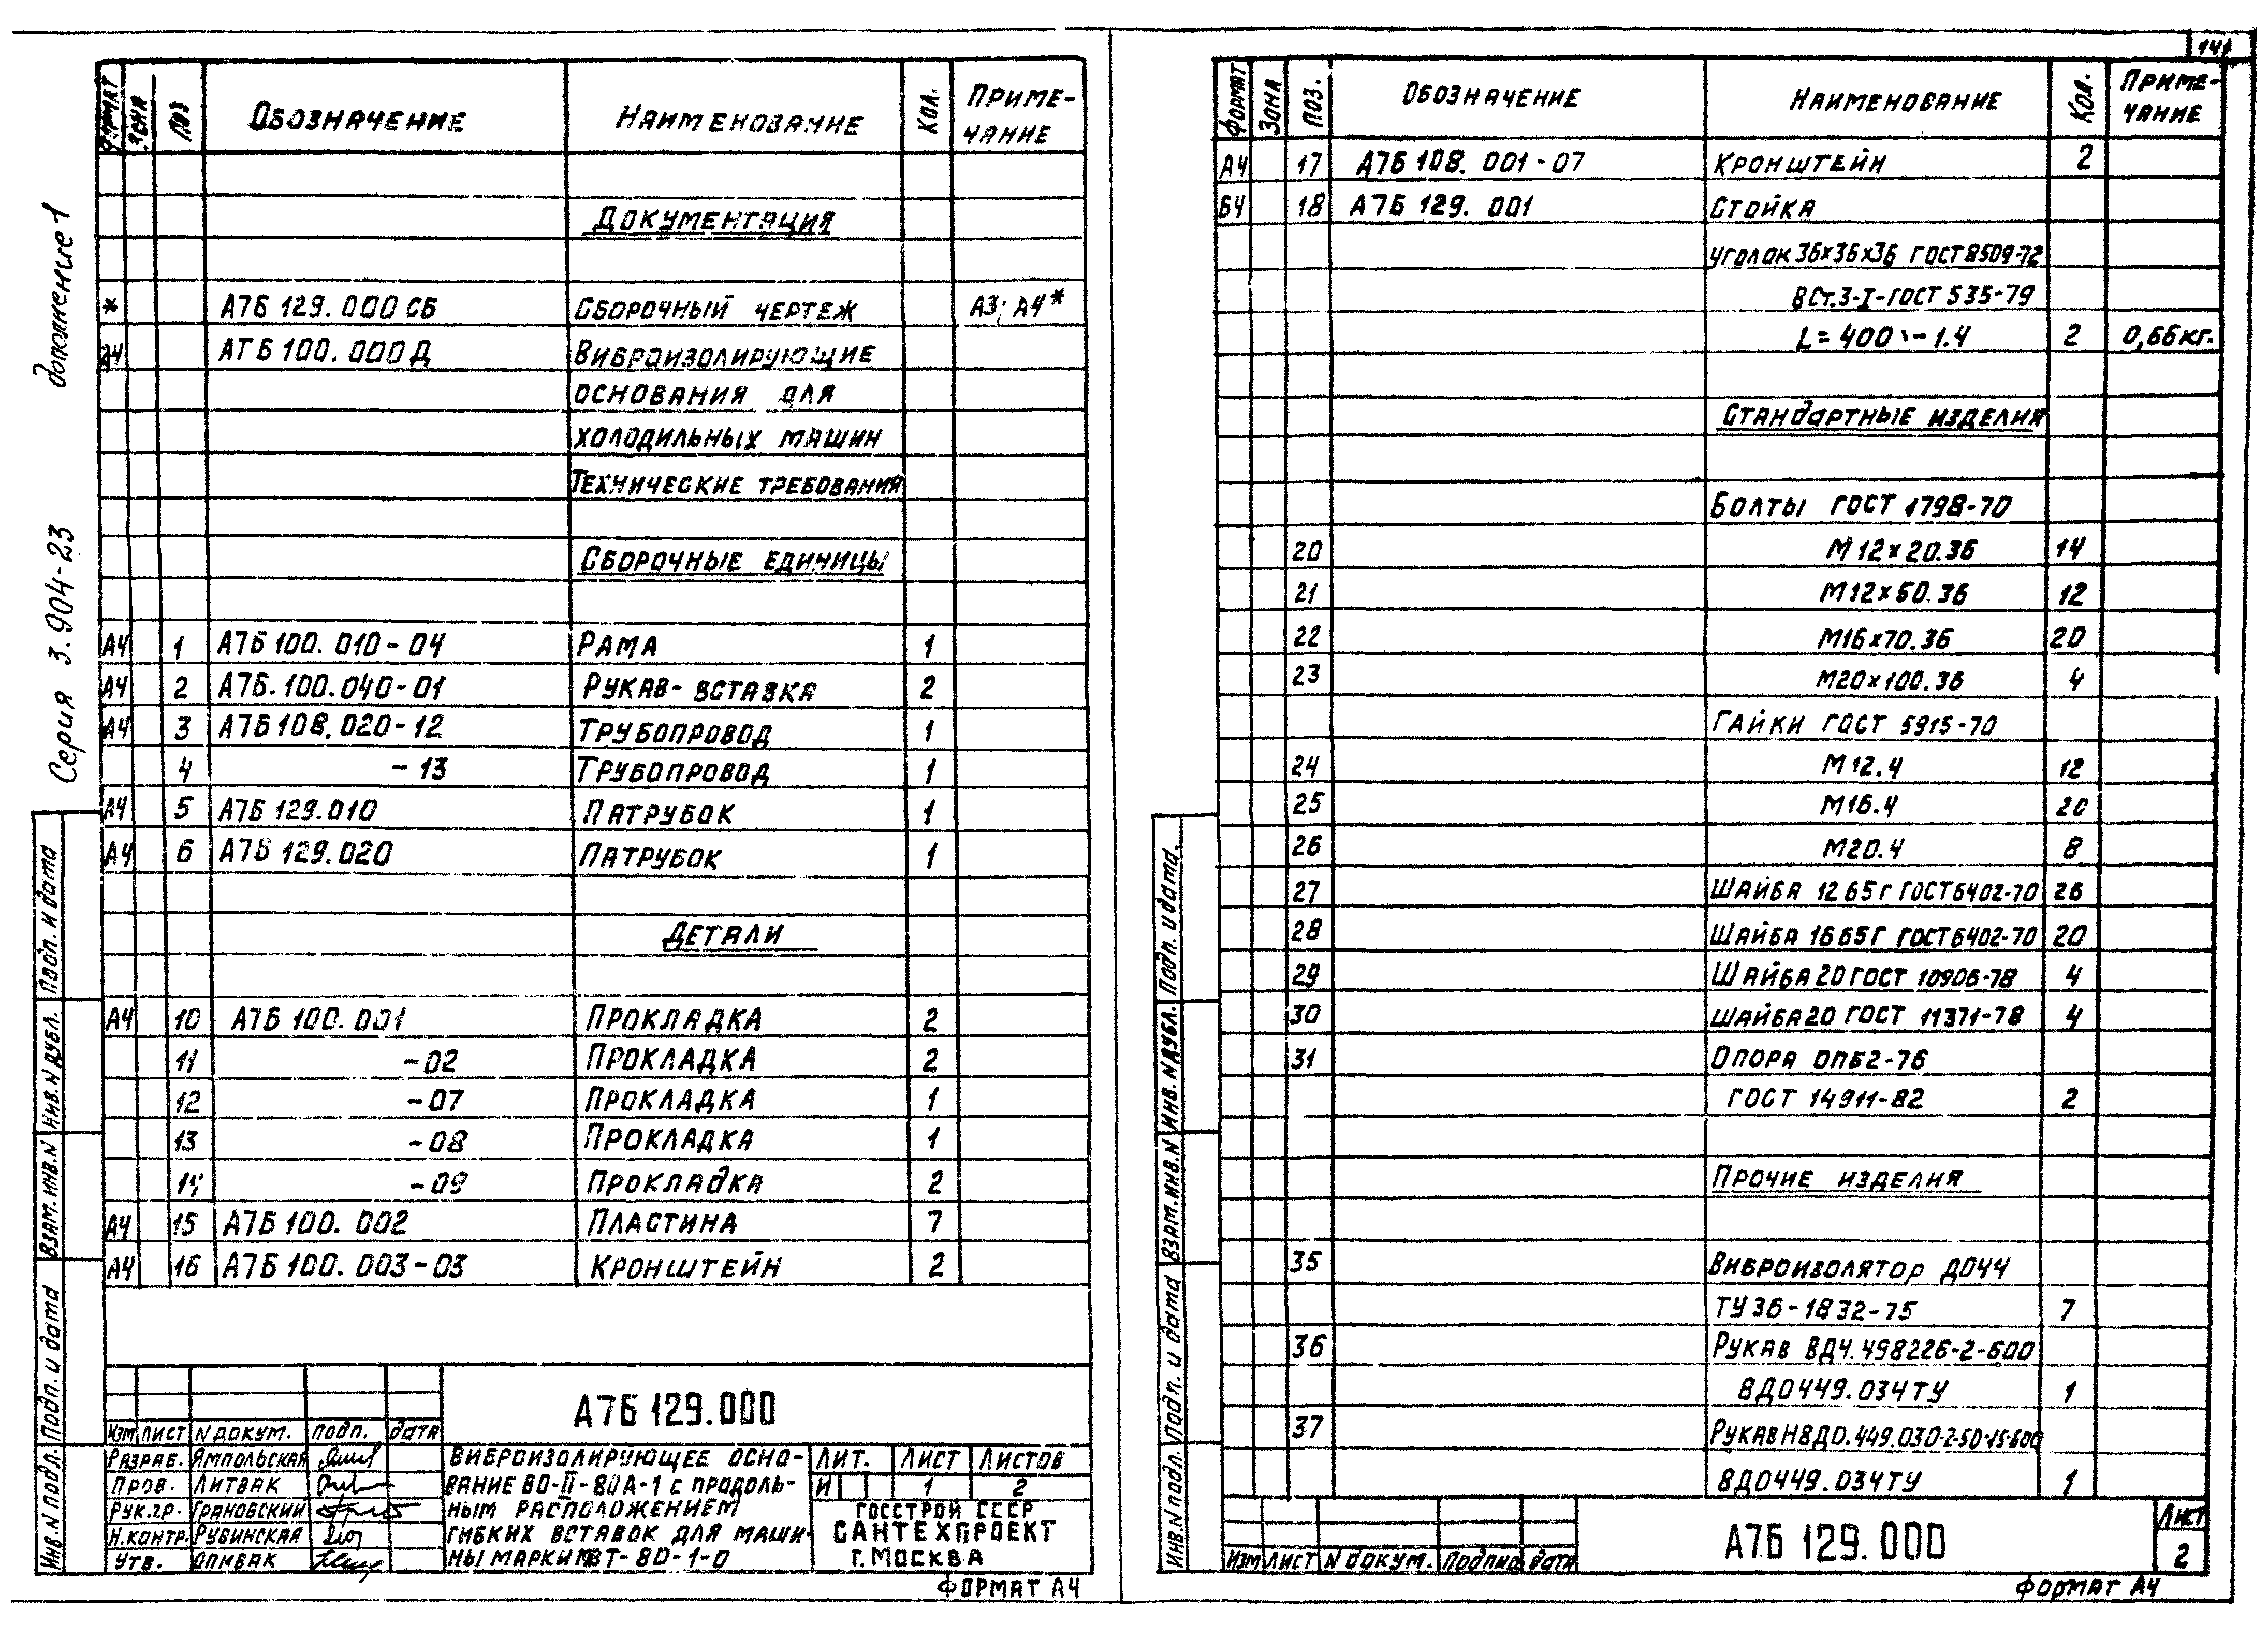 141
дополнение 1
Серия 3.904-23
ФОРМАТ ЗОНА ПОЗ ОБОЗНАЧЕНИЕ НАИМЕНОВАНИЕ КОЛ. ПРИМЕ-
ЧАНИЕ
ДОКУМЕНТАЦИЯ
* А7Б 129.000 СБ СБОРОЧНЫЙ ЧЕРТЕЖ А3; А4*
А4 АТБ 100.000 Д ВИБРОИЗОЛИРУЮЩИЕ
ОСНОВАНИЯ ДЛЯ
ХОЛОДИЛЬНЫХ МАШИН
ТЕХНИЧЕСКИЕ ТРЕБОВАНИЯ
СБОРОЧНЫЕ ЕДИНИЦЫ
А4 1 А7Б 100.010-04 РАМА 1
А4 2 А7Б.100.040-01 РУКАВ-ВСТАВКА 2
А4 3 А7Б 108.020-12 ТРУБОПРОВОД 1
4 -13 ТРУБОПРОВОД 1
А4 5 А7Б 129.010 ПАТРУБОК 1
А4 6 А7Б 129.020 ПАТРУБОК 1
ДЕТАЛИ
А4 10 А7Б 100.001 ПРОКЛАДКА 2
11 -02 ПРОКЛАДКА 2
12 -07 ПРОКЛАДКА 1
13 -08 ПРОКЛАДКА 1
14 -09 ПРОКЛАДКА 2
А4 15 А7Б 100.002 ПЛАСТИНА 7
А4 16 А7Б 100.003-03 КРОНШТЕЙН 2
Подп. и дата
Инв. N дубл.
Взам. инв. N
Подп. и дата
Инв. N подл.
А7Б 129.000
ИЗМ ЛИСТ N ДОКУМ. ПОДП. ДАТА
РАЗРАБ. ЯМПОЛЬСКАЯ
ПРОВ. ЛИТВАК
РУК.ГР. ГРАНОВСКИЙ
Н.КОНТР. РУБИНСКАЯ
УТВ.
ВИБРОИЗОЛИРУЮЩЕЕ ОСНО-
ВАНИЕ ВО-II-80А-1 С ПРОДОЛЬ-
НЫМ РАСПОЛОЖЕНИЕМ
ГИБКИХ ВСТАВОК ДЛЯ МАШИ-
НЫ МАРКИ 80-1-0
ЛИТ. ЛИСТ ЛИСТОВ
И 1 2
ГОССТРОЙ СССР
САНТЕХПРОЕКТ
Г. МОСКВА
ФОРМАТ А4
ФОРМАТ ЗОНА ПОЗ. ОБОЗНАЧЕНИЕ НАИМЕНОВАНИЕ КОЛ. ПРИМЕ-
ЧАНИЕ
А4 17 А7Б 108.001-07 КРОНШТЕЙН 2
Б4 18 А7Б 129.001 СТОЙКА
УГОЛОК 36х36х36 ГОСТ 8509-72
ВСт.3-I-ГОСТ 535-79
L=400 -1.4 2 0,66 кг.
СТАНДАРТНЫЕ ИЗДЕЛИЯ
БОЛТЫ ГОСТ 1798-70
20 М12х20.36 14
21 М12х60.36 12
22 М16х70.36 20
23 М20х100.36 4
ГАЙКИ ГОСТ 5915-70
24 М12.4 12
25 М16.4 20
26 М20.4 8
27 ШАЙБА 12 65Г ГОСТ 6402-70 26
28 ШАЙБА 16 65Г ГОСТ 6402-70 20
29 ШАЙБА 20 ГОСТ 10906-78 4
30 ШАЙБА 20 ГОСТ 11371-78 4
31 ОПОРА ОПБ2-76
ГОСТ 14911-82 2
ПРОЧИЕ ИЗДЕЛИЯ
35 ВИБРОИЗОЛЯТОР ДО44
ТУ 36-1832-75 7
36 РУКАВ ВД4.498226-2-600
ВД0449.034ТУ 1
37 РУКАВ НВДО.449.030-2-50-15-600
ВД0449.034ТУ 1
Подп. и дата.
Инв. N дубл.
Взам. инв. N
Подп. и дата
Инв. N подл.
ИЗМ ЛИСТ N ДОКУМ. ПОДПИСЬ ДАТА
А7Б 129.000
ЛИСТ
2
ФОРМАТ А4